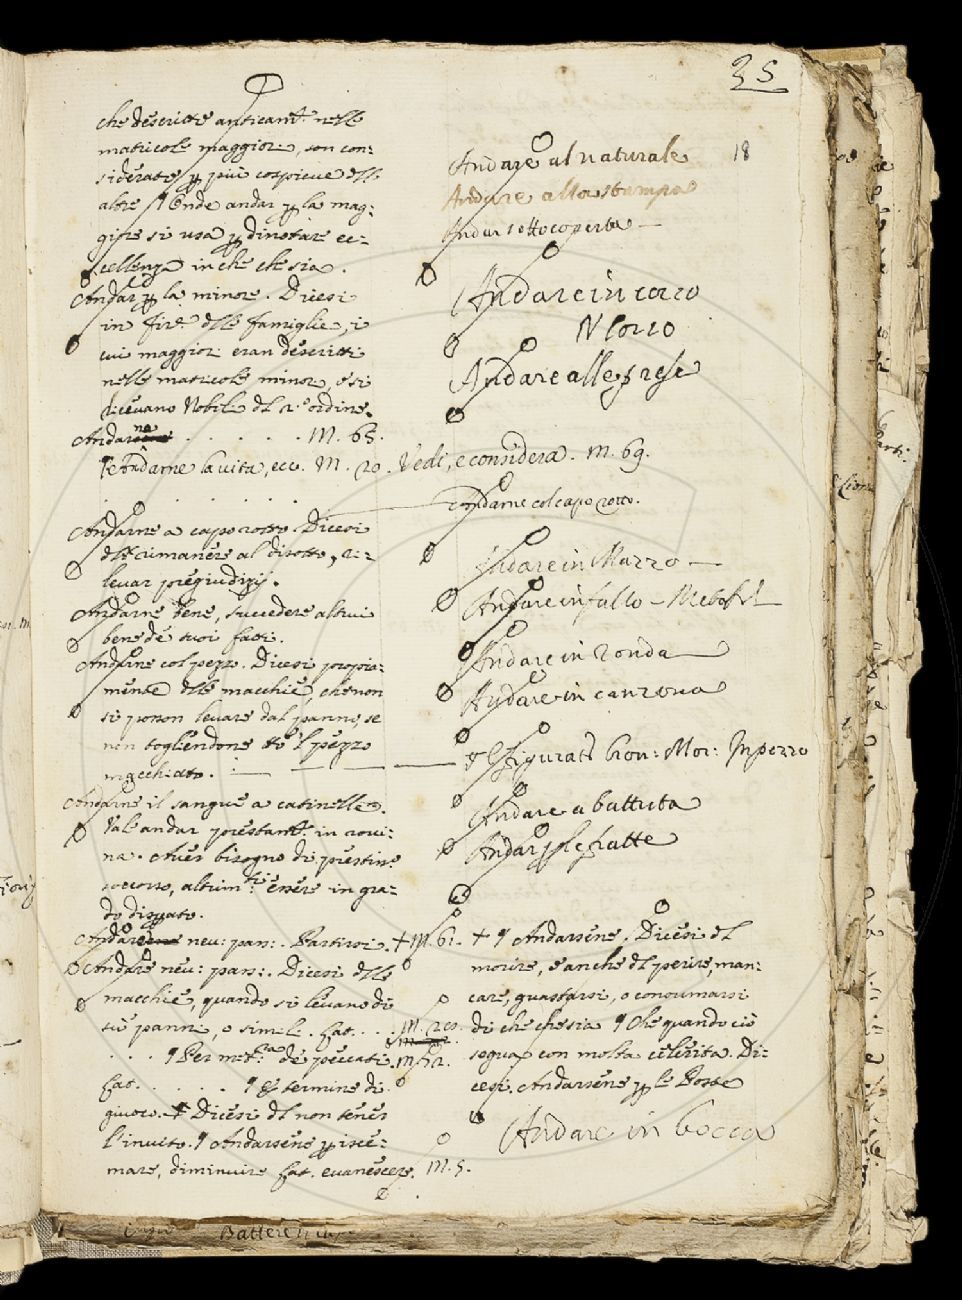 35
18
che descritte anticam.te nelle
matricole maggiori, son con:
siderate p più cospicue dlle
altre ¶ Onde andar p la mag:
giore si usa p dinotare ec-
cellenza in che che sia.
Andar p la minore. Dicesi
in Fir.e dlle famiglie, i
cui maggiori eran descritti
nelle matricole minori, e si
dicevano Nobili dl 2.o ordine.
Andarne . . . . . M. 65.
Andarne la vita, ecc. M. 20. Vedi, e considera. M. 69.
Andarne a capo rotto. Dicesi
dl rimanere al disotto, ri-
levar pregiudizij.
Andarne bene, succedere altrui
bene de suoi fatti.
Andarne col pezzo. Dicesi propia:
mente dlle macchie, che non
si posson levare dal panno, se
non togliendone tto 'l pezzo
macchiato.
Andarne il sangue a catinelle.
Vale andar prestam.te in rovi:
na. Aver bisogno di prestiss.o
soccorso, altrim.ti essere in gra-
do disperato.
Andarsene neu: pass: Partirsi. + M. 61.
Andarsene neu: pass: Dicesi dlle
macchie, quando si levano di
su panni, o simili. Lat. . . . M.
. . . ¶ Per met.a de peccati M.
Lat. . . . . ¶ È termine di
giuoco. Dicesi dl non tener
l'invito. ¶ Andarsene p isce-
mare, diminuire Lat. evanescere. M. 5.
Andare al naturale
Andare alla stampa
Andar sottocoperta
Andare in cocco
N Cocco
Andare alle prese
Andarne col capo rotto.
Andare in Mazzo
Andare in fallo
Andare in ronda
Andare in canzona
Figurat. Mor: In pezzo
Andare a battuta
Andar p le fratte
+ ¶ Andarsene. Dicesi dl
morire, e anche dl perire, man:
care, guastarsi, o consumarsi
di che che sia ¶ Che quando ciò
segua con molta celerità. Di:
cesi. Andarsene p le Poste
Andare in bocca